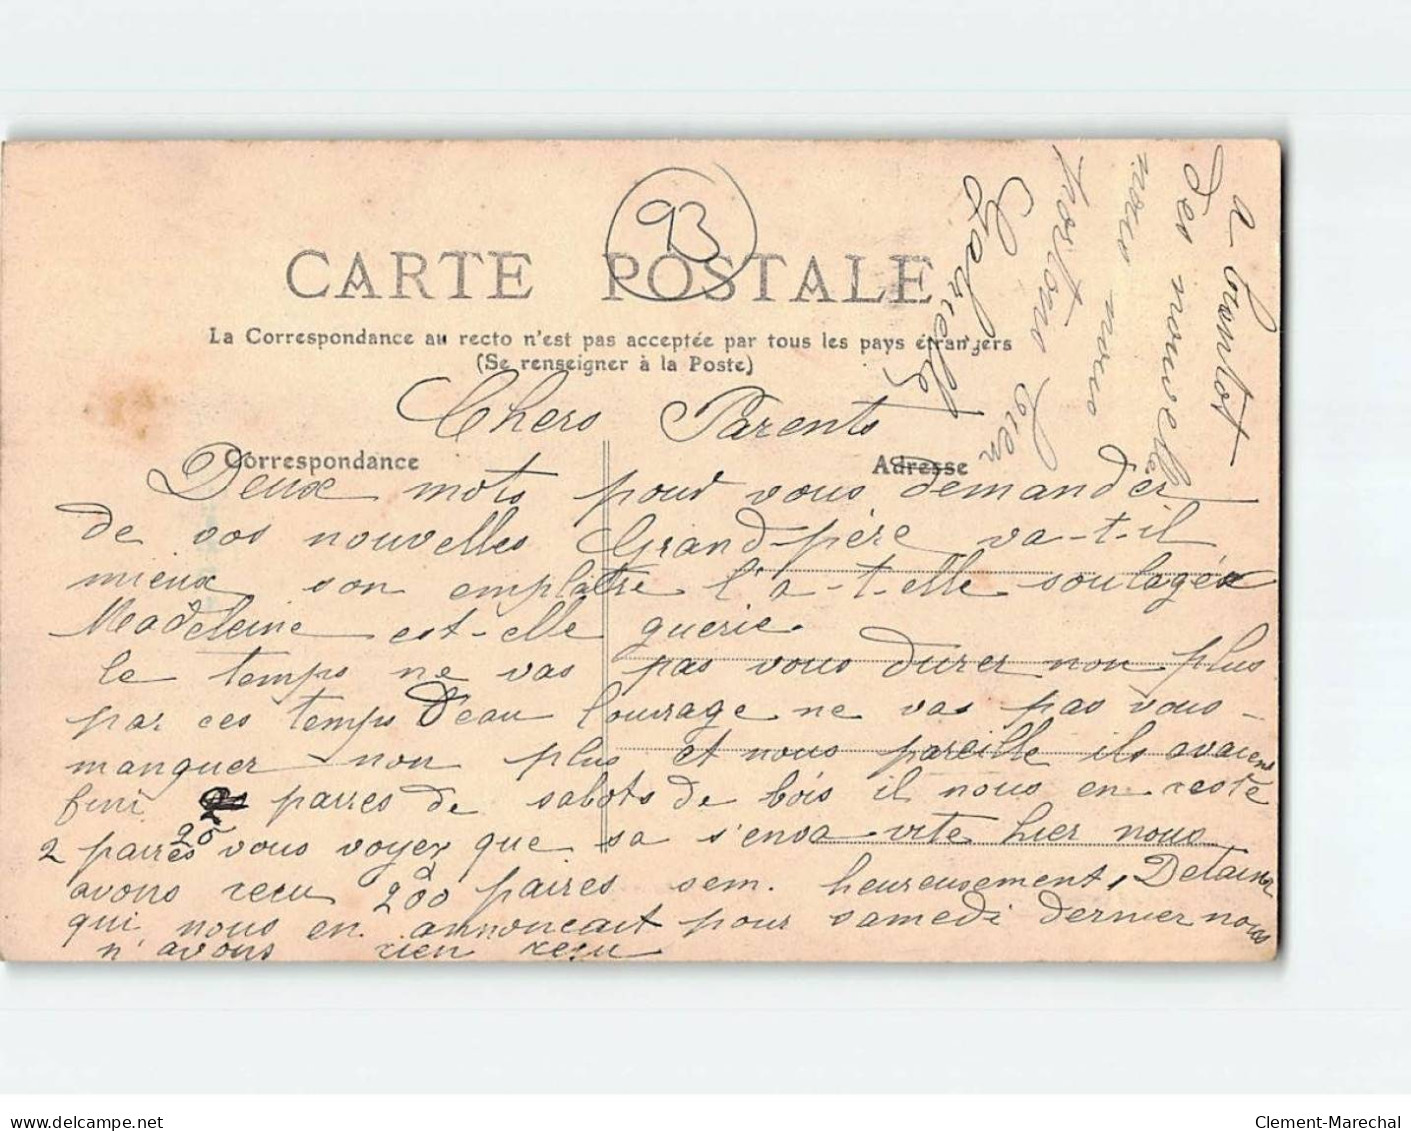 93
CARTE POSTALE
La Correspondance au recto n'est pas acceptée par tous les pays étrangers
(Se renseigner à la Poste)
Chers Parents
Correspondance
Adresse
Deux mots pour vous demander
de vos nouvelles Grand-père va-t-il
mieux son emplatre l'a-t-elle soulagée
Madeleine est-elle guerie.
le temps ne vas pas vous durer non plus
par ces temps d'eau l'ouvrage ne vas pas vous
manquer non plus et nous pareille ils avaient
fini 25 paires de sabots de bois il nous en reste
2 paires vous voyez que sa s'en va vite hier nous
avons recu 200 paires sem. heureusement, Delaine
qui nous en annoncait pour samedi dernier nous
n'avons rien recu
a bientot
des nouvelles
nous nous
portons bien
Gabrielle
delcampe.net
Clement-Marechal